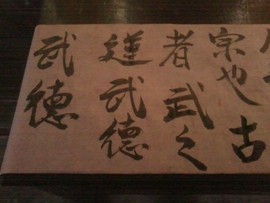 武德
達武德
者武之
宗也古